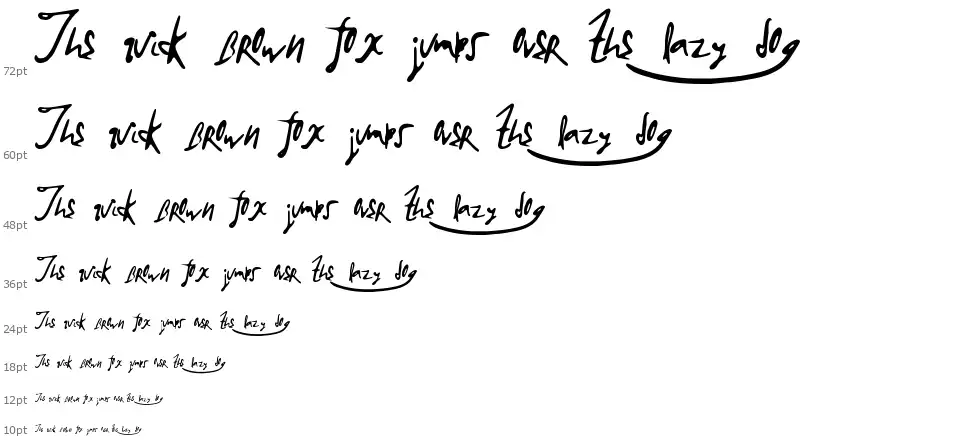 72pt The quick BROWN fox jumps oveR the lazy dog
60pt The quick BROWN fox jumps oveR the lazy dog
48pt The quick BROWN fox jumps oveR the lazy dog
36pt The quick BROWN fox jumps oveR the lazy dog
24pt The quick BROWN fox jumps oveR the lazy dog
18pt The quick BROWN fox jumps oveR the lazy dog
12pt The quick BROWN fox jumps oveR the lazy dog
10pt The quick BROWN fox jumps oveR the lazy dog